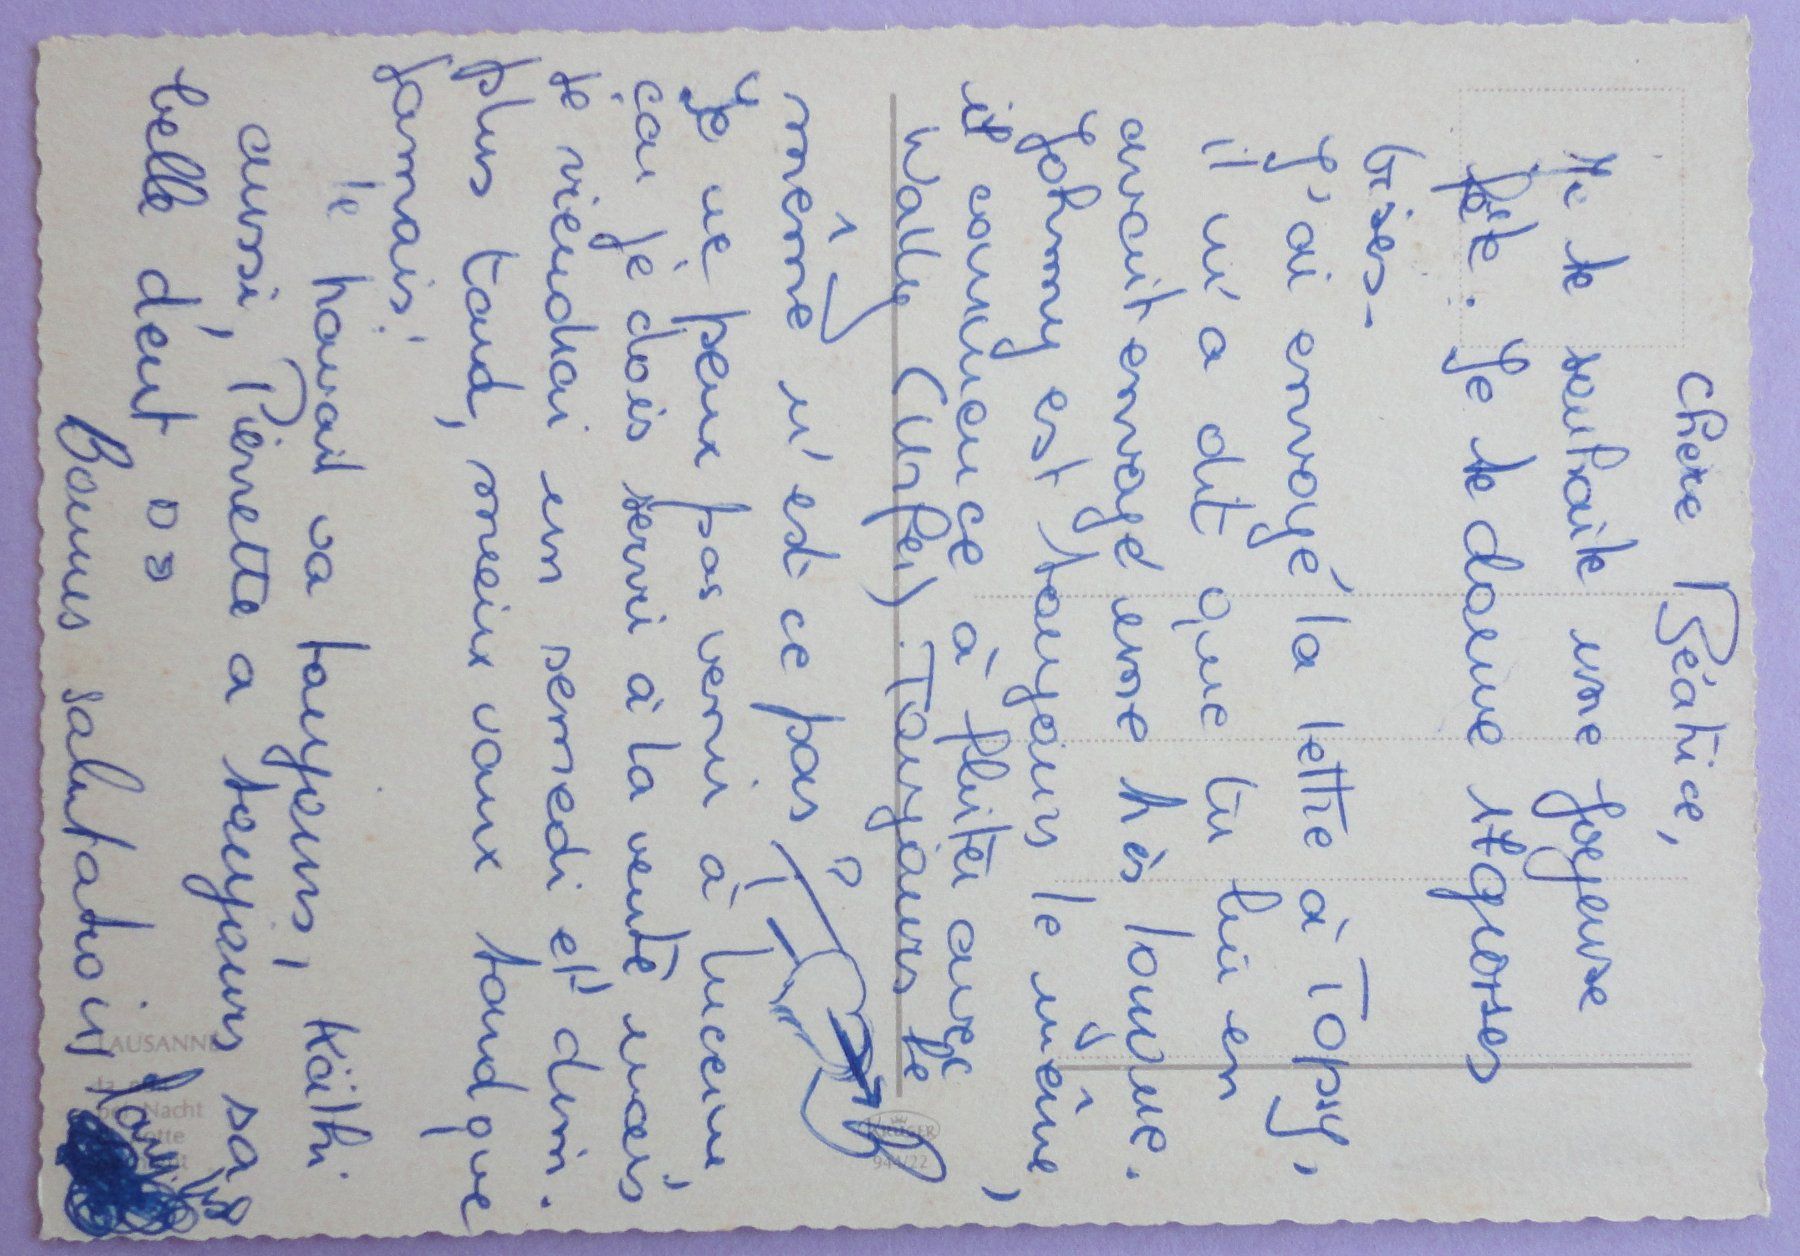 Chère Béatrice,
Je te souhaite une joyeuse
fête. Je te donne 17 grosses
bises.
J'ai envoyé la lettre à Topsy,
il m'a dit que tu lui en
avait envoyé une très bonne.
Johnny est toujours le même,
il commence à fluiter avec
Wally (Urfer). Toujours le
même n'est ce pas ?
Je ne peux pas venir à Lucerne,
car je dois servir à la vente mais
je viendrai un samedi et dim.
plus tard, mieux vaux tard que
jamais!
le travail va toujours, Käthi
aussi, Pierrette a toujours sa
belle dent
Bonnes salutations
LAUSANNE
Nacht
KRÜGER
944/22